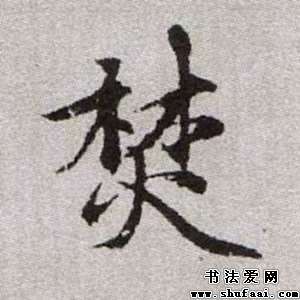 焚
书法爱网
www.shufaai.com